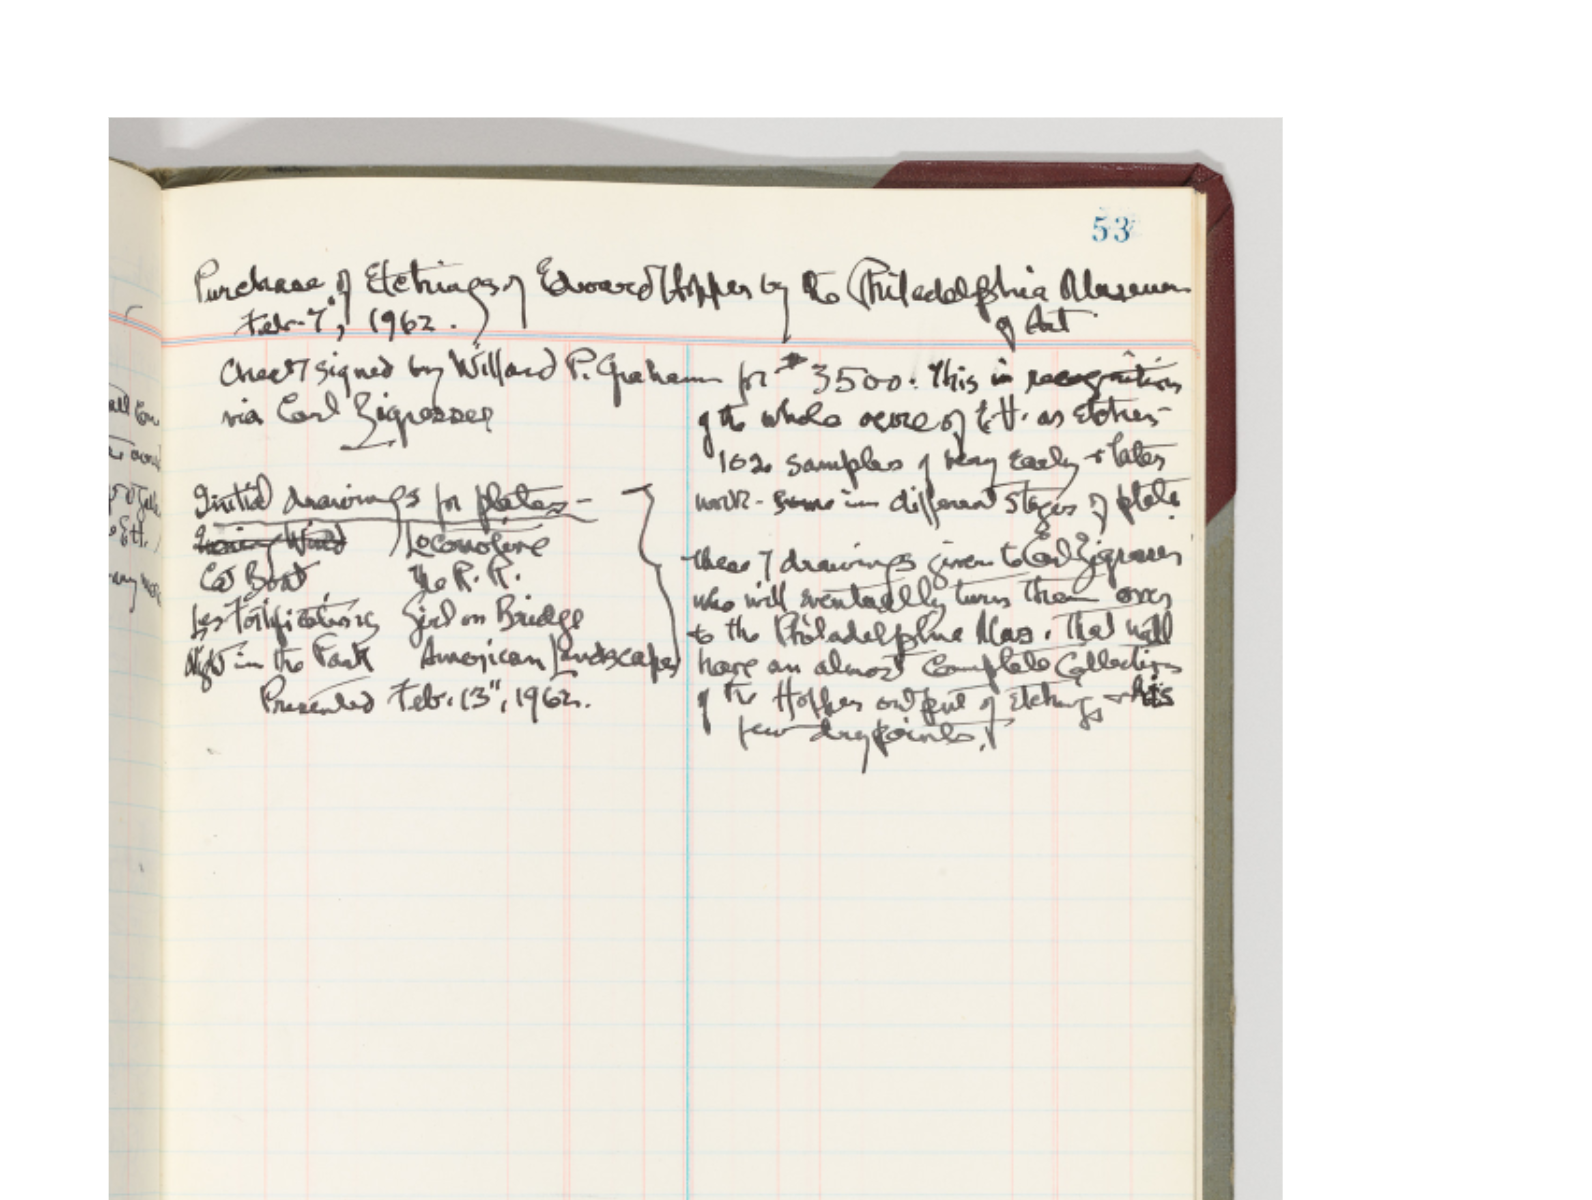 53
Purchase of Etchings of Edward Hopper by the Philadelphia Museum
Feb. 7", 1962.
of Art
Check signed by Willard P. Graham for $3500. This in recognition
via Carl Zigrosser
of the whole oeuvre of E.H. as etcher -
102 samples of very early + later
work - some in different stages of plate.
Initial drawings for plates -
Locomotive
Cat Boat The R.R.
Les Fortifications Girl on Bridge
Night in the Park American Landscape
Presented Feb. 13", 1962.
these 7 drawings given to Carl Zigrosser
who will eventually turn them over
to the Philadelphia Mus. That will
have an almost complete collection
of the Hopper output of etchings + his
few drypoints.